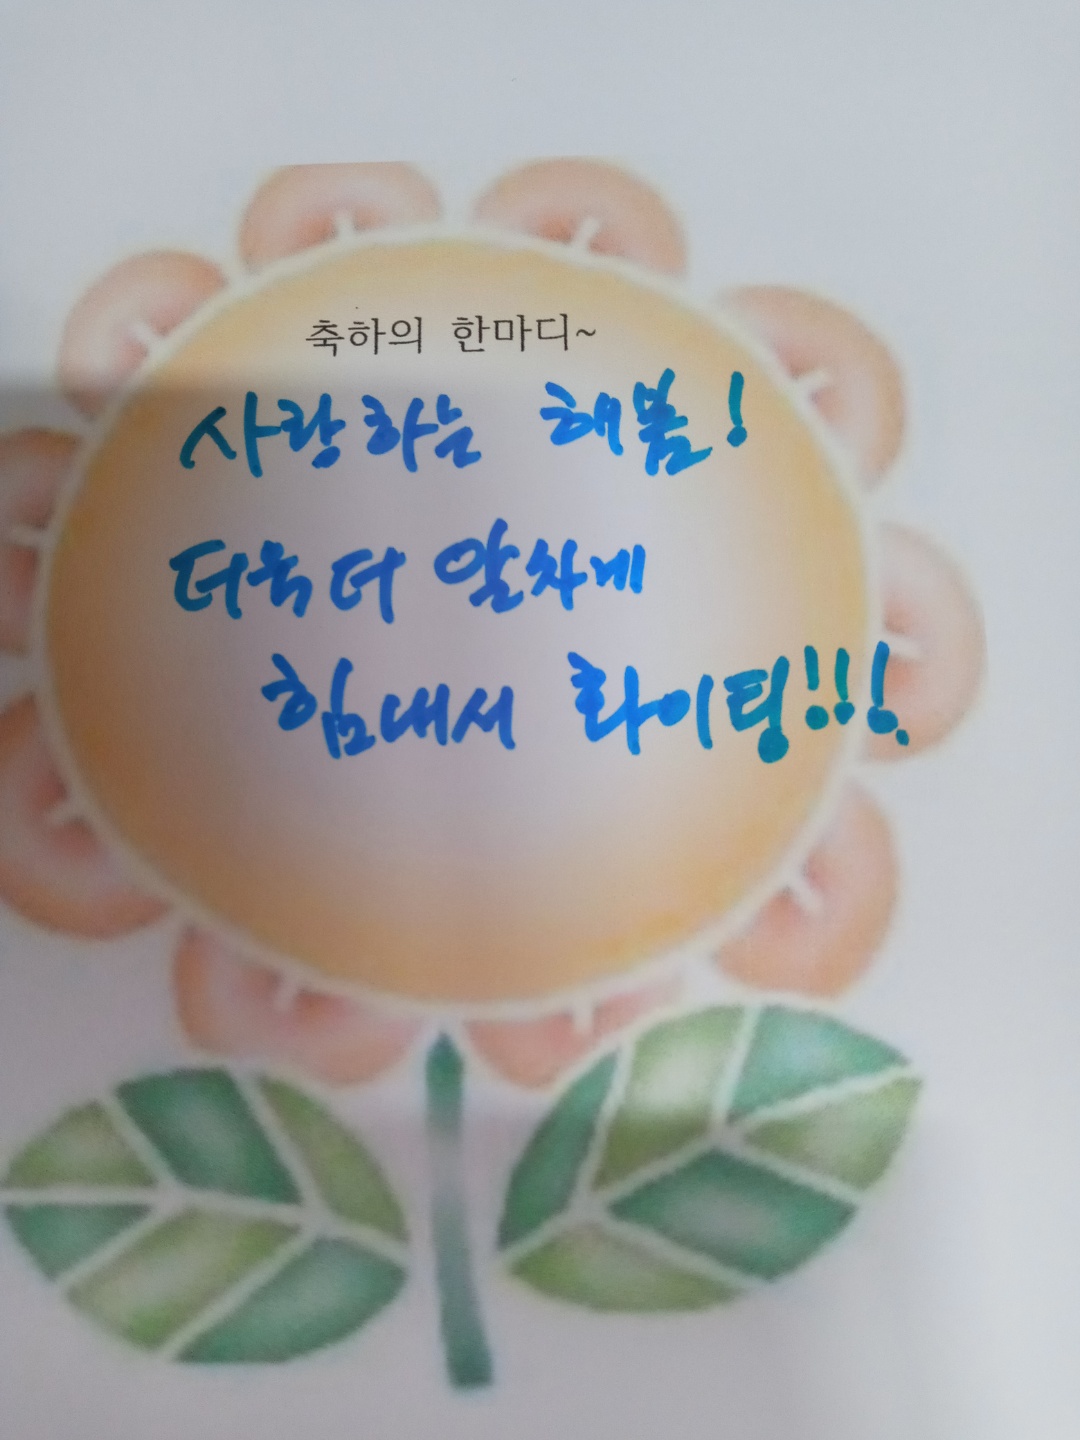 축하의 한마디~
사랑하는 해봄!
더욱 더 알차게
힘내서 화이팅!!!